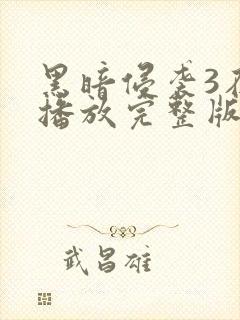 黑暗侵袭3
播放完整版
武昌雄